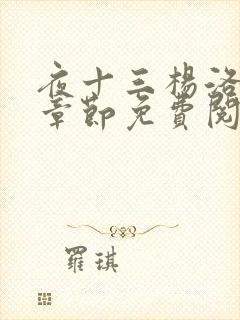 夜十三楊洛
章節免費閱
羅琪